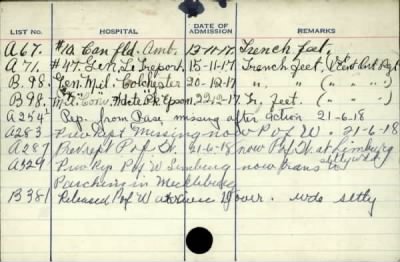 LIST No. HOSPITAL DATE OF ADMISSION REMARKS
A67. #10 Can fld. Amb. 13-11-17. Trench feet,
A71. #47. Gen. Le Treport. 15-11-17. Trench feet,
B.98. Gen. Mil. Colchester 20-12-17 " " ( " " " )
B98. Conv. Epsom, 22-12-17. Tr. feet. ( " " " )
A254 Rep. from Base missing after action 21-6-18
A283 Prev. rept Missing now P of W. 21-6-18
A287 Prev. rept P of W. 21-6-18 now P of W. at Limburg
A329 Prev Rep P of W Limburg now trans to
Parchim in Mecklenburg
B381 Released P of W arrived Dover. sttly